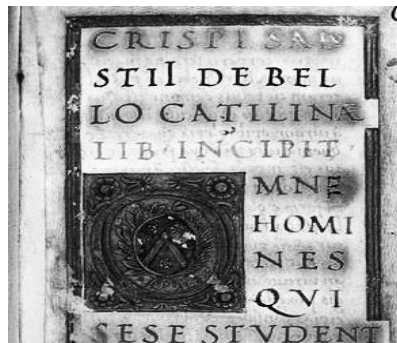 CRISPI
STII DE BEL
LO CATILINÆ
LIB·INCIPIT
OMNE
HOMI
NES
QVI
SESE STVDENT